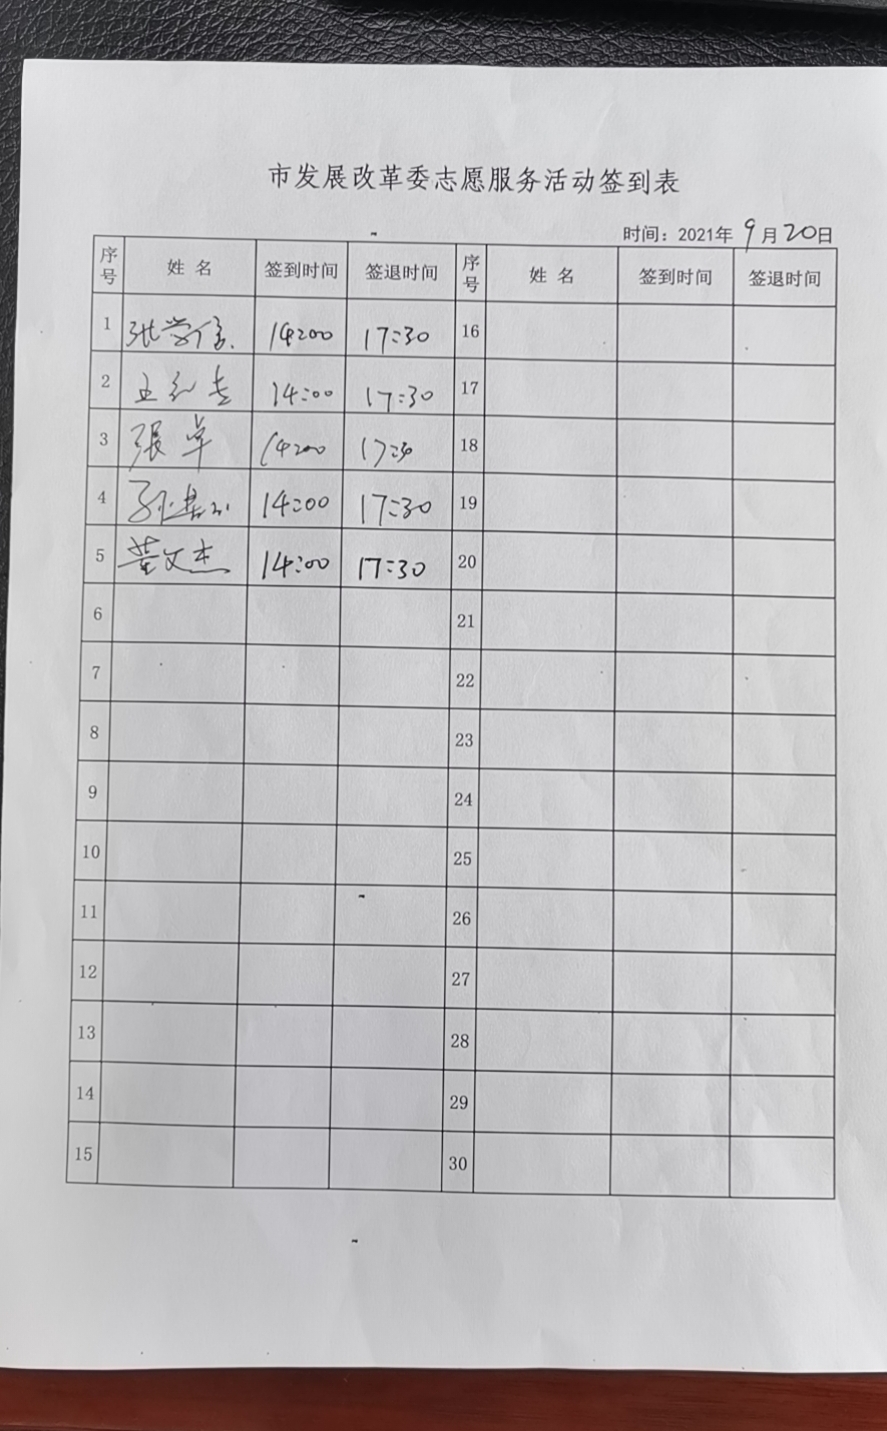 市发展改革委志愿服务活动签到表
时间：2021年 9月20日
序号 姓 名 签到时间 签退时间 序号 姓 名 签到时间 签退时间
1 张学信 14:00 17:30 16
2 14:00 17:30 17
3 張卓 14:00 17:30 18
4 14:00 17:30 19
5 董文杰 14:00 17:30 20
6 21
7 22
8 23
9 24
10 25
11 26
12 27
13 28
14 29
15 30